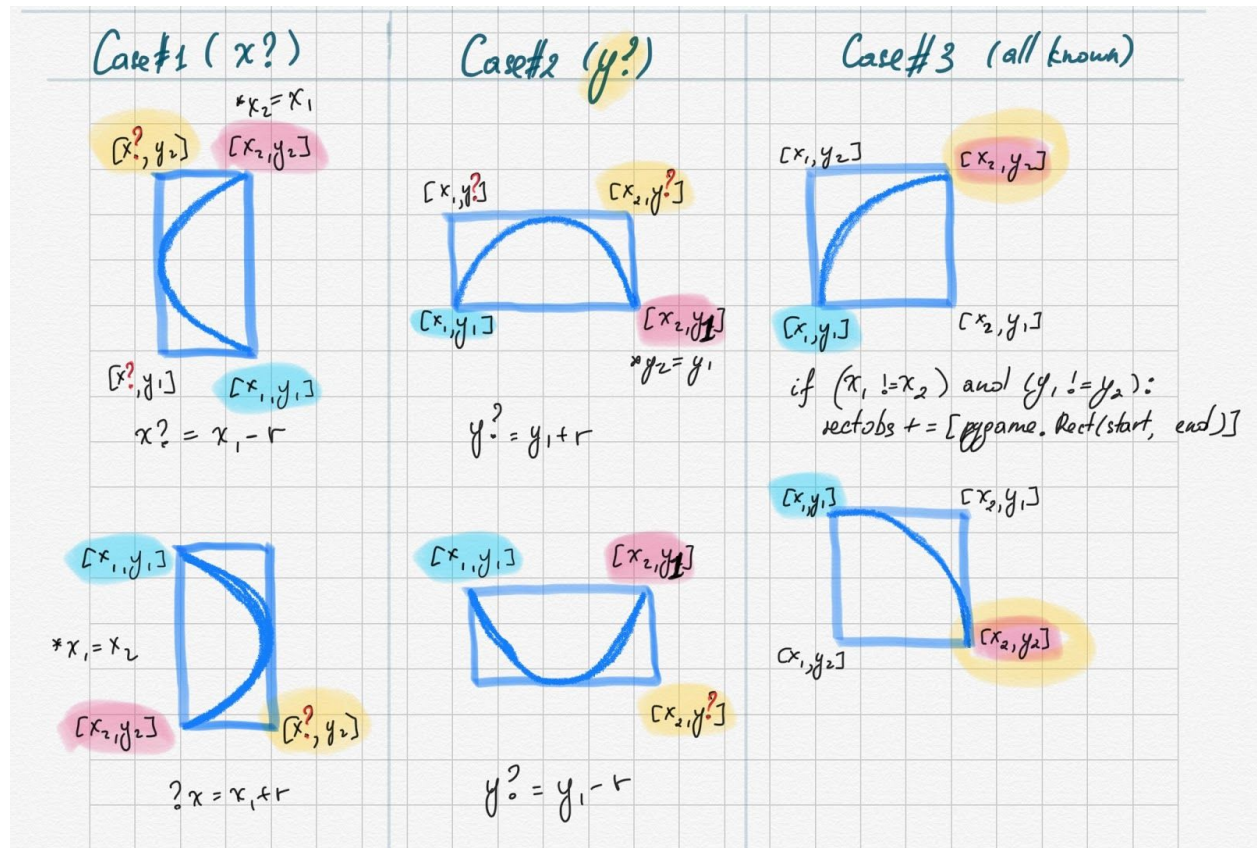 Case#1 (x?)
*x₂=x₁
[x?,y₂] [x₂,y₂]
[x?,y₁] [x₁,y₁]
x? = x₁-r
[x₁,y₁]
*x₁=x₂
[x₂,y₂] [x?,y₂]
?x = x₁+r
Case#2 (y?)
[x₁,y?] [x₂,y?]
[x₁,y₁] [x₂,y1]
*y₂=y₁
y? = y₁+r
[x₁,y₁] [x₂,y1]
[x₂,y?]
y? = y₁-r
Case#3 (all known)
[x₁,y₂] [x₂,y₂]
[x₁,y₁] [x₂,y₁]
if (x₁ != x₂) and (y₁ != y₂):
rectobs += [pygame.Rect(start, end)]
[x₁,y₁] [x₂,y₁]
[x₁,y₂] [x₂,y₂]